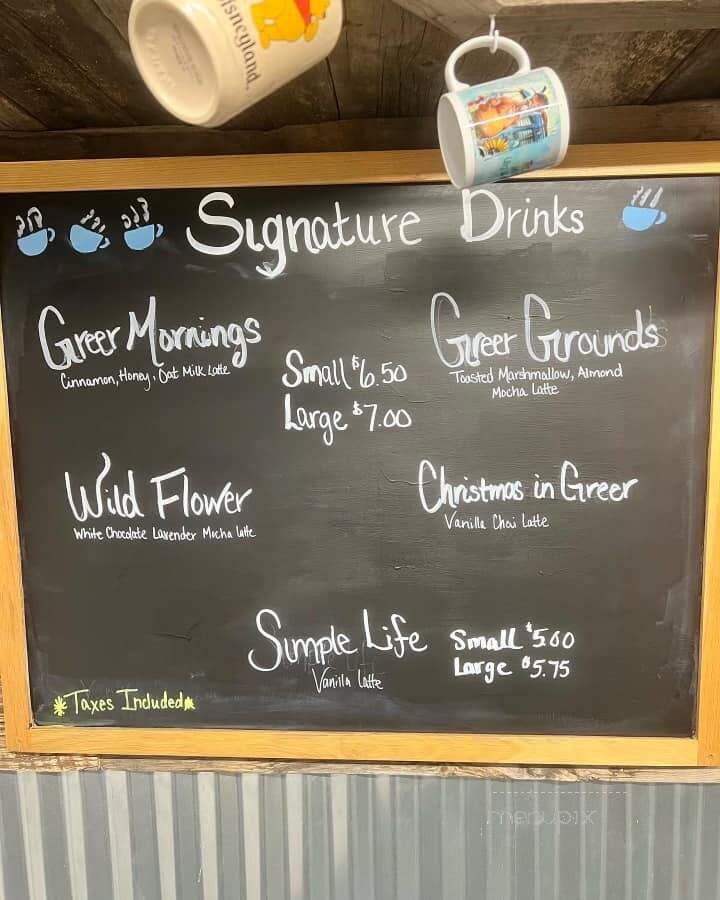 Disneyland.
Signature Drinks
Greer Mornings
Cinnamon, Honey, Oat Milk Latte
Small $6.50
Large $7.00
Greer Grounds
Toasted Marshmallow, Almond
Mocha Latte
Wild Flower
White Chocolate Lavender Mocha Latte
Christmas in Greer
Vanilla Chai Latte
Simple Life
Vanilla Latte
Small $5.00
Large $5.75
*Taxes Included*
menupix